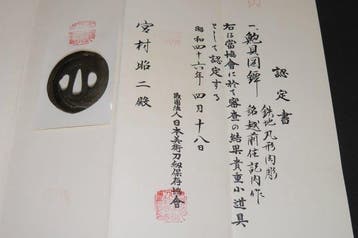 認定書
一、鮑貝図鐔
鉄地丸形肉彫
銘越前住記内作
右は當協會に於て審査の結果貴重小道具
として認定する
昭和四十六年四月十八日
財團法人日本美術刀剣保存協會
宮村昭二殿